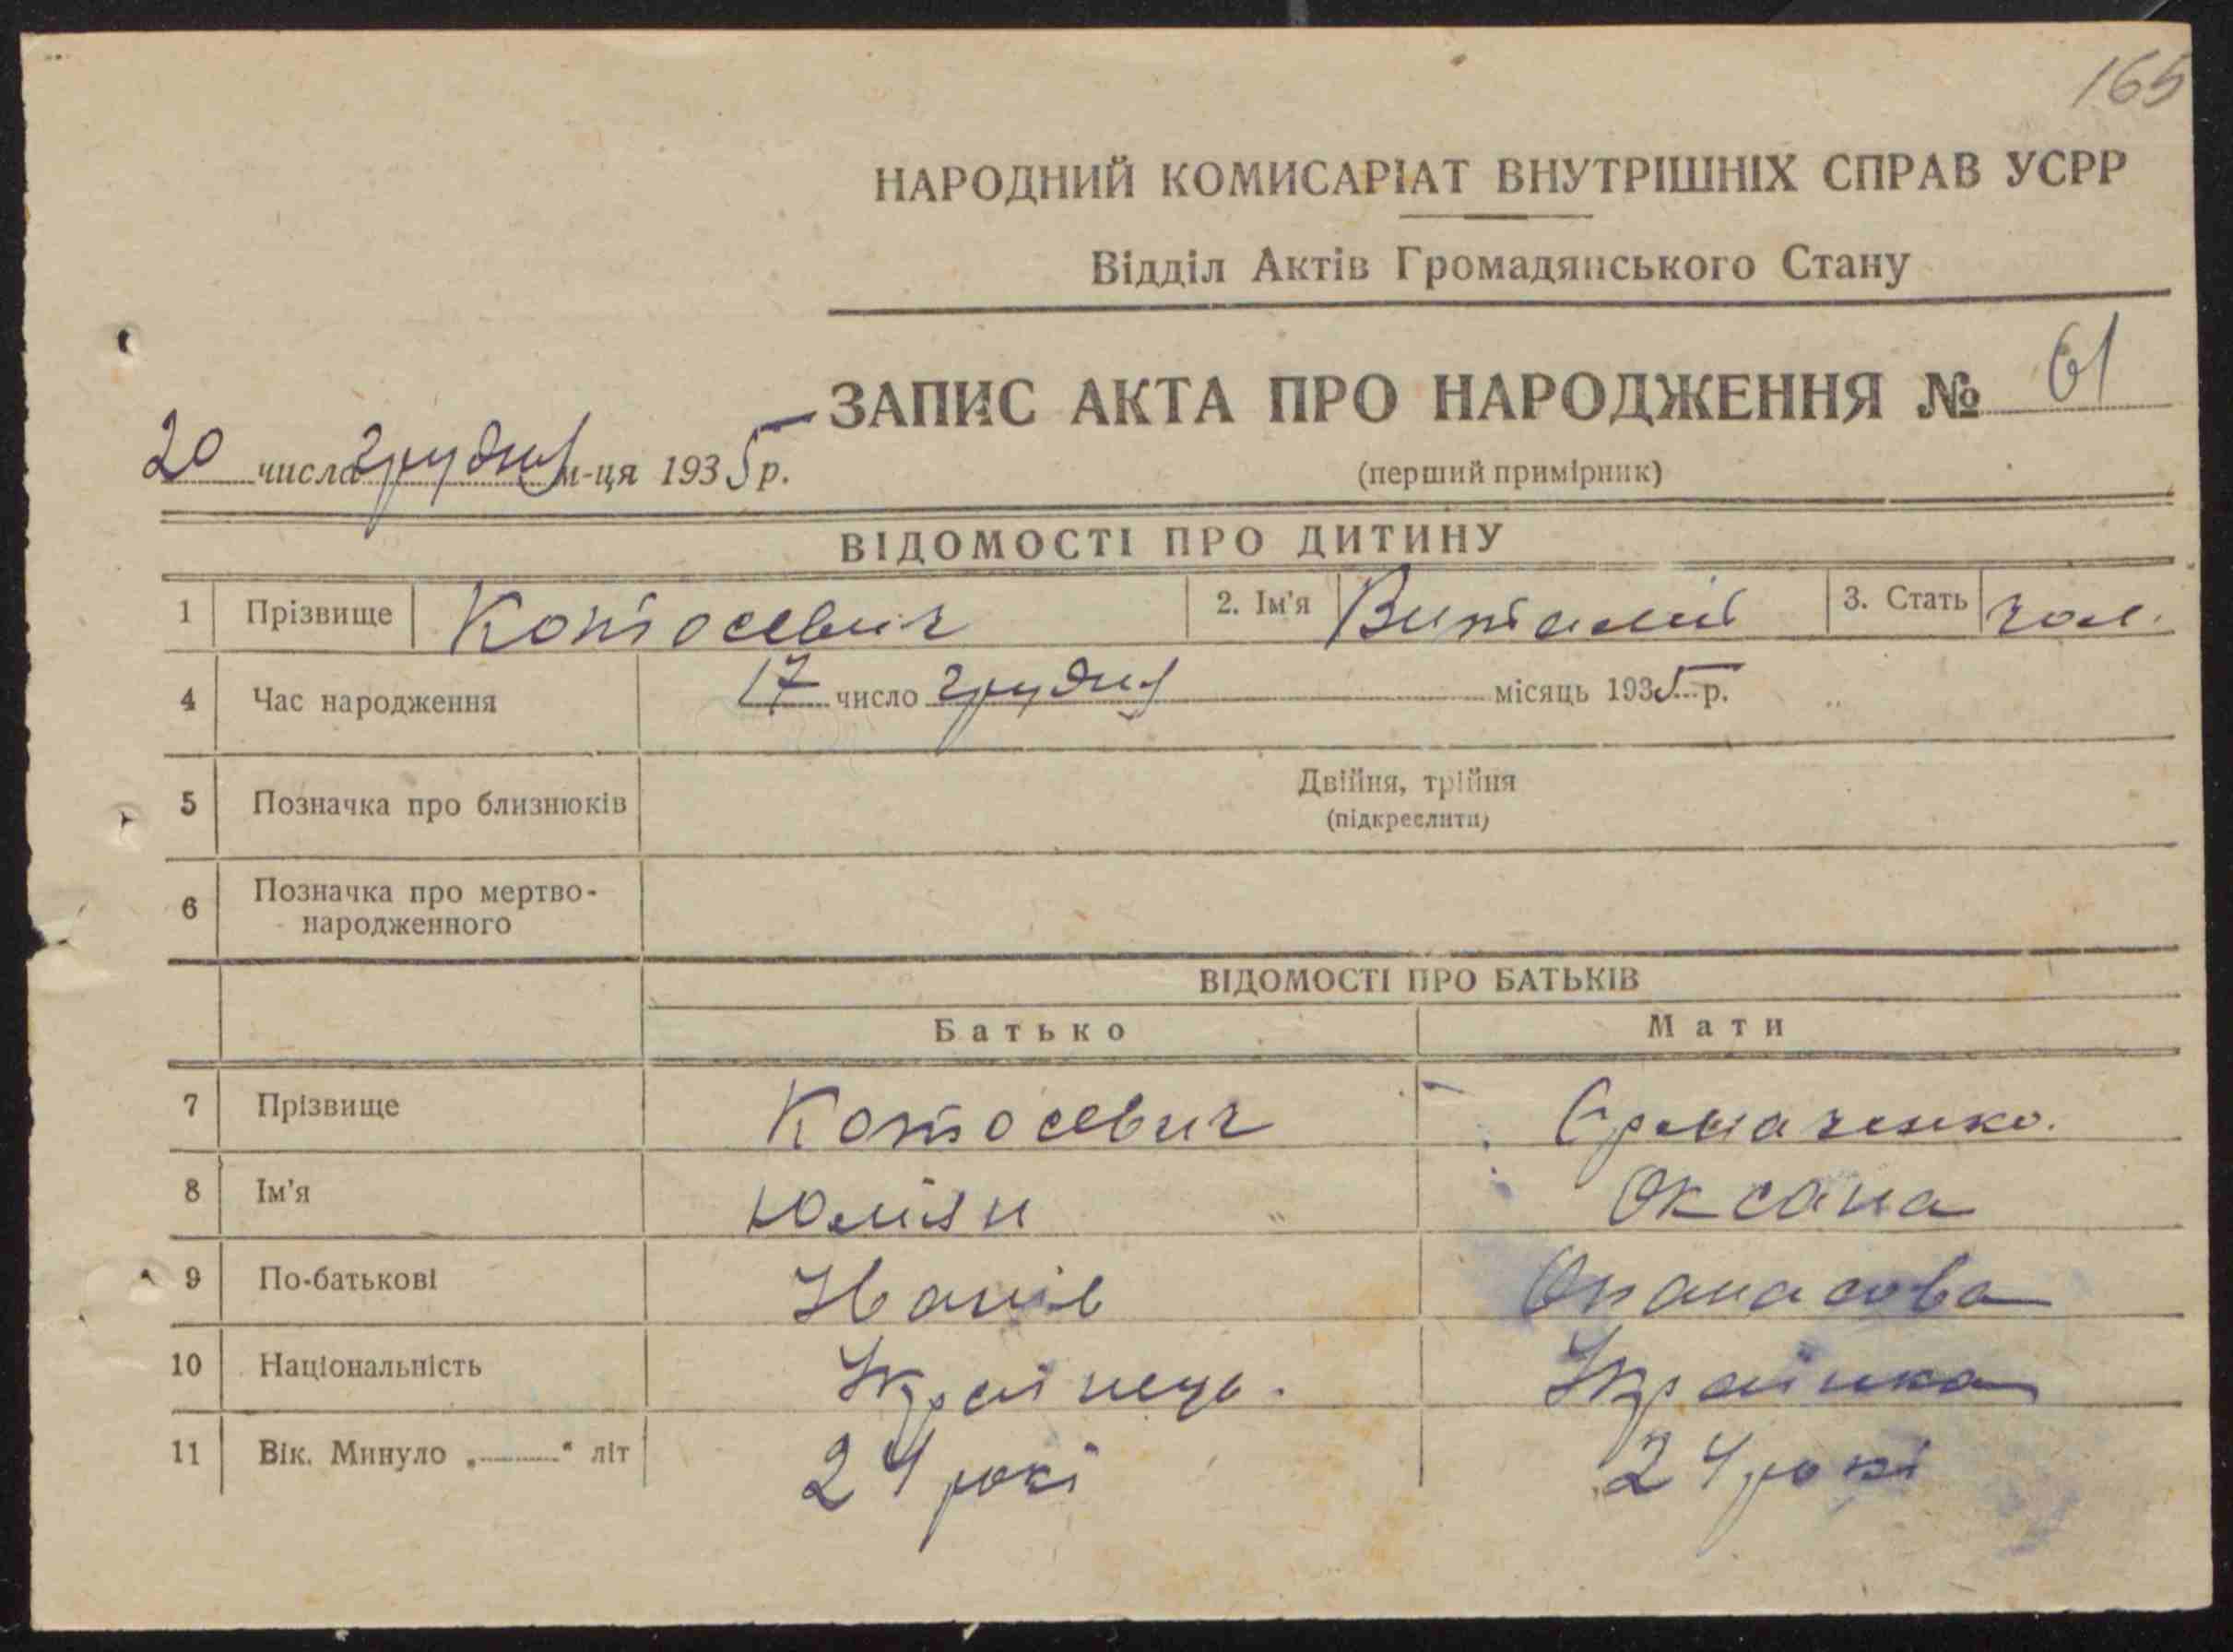 165
НАРОДНИЙ КОМИСАРІАТ ВНУТРІШНІХ СПРАВ УСРР
Відділ Актів Громадянського Стану
ЗАПИС АКТА ПРО НАРОДЖЕННЯ № 61
20 числа грудня м-ця 1935 р.
(перший примірник)
ВІДОМОСТІ ПРО ДИТИНУ
1 Прізвище Котосевич 2. Ім'я Виталий 3. Стать чол.
4 Час народження 17 число грудня місяць 1935 р.
5 Позначка про близнюків Двійня, трійня
(підкреслити)
6 Позначка про мертво-
народженного
ВІДОМОСТІ ПРО БАТЬКІВ
Батько Мати
7 Прізвище Котосевич Єрмаченко.
8 Ім'я Юліян Оксана
9 По-батькові Иванів Опанасова
10 Національність Українець. Українка
11 Вік. Минуло „ “ літ 24 рокі 24 рокі